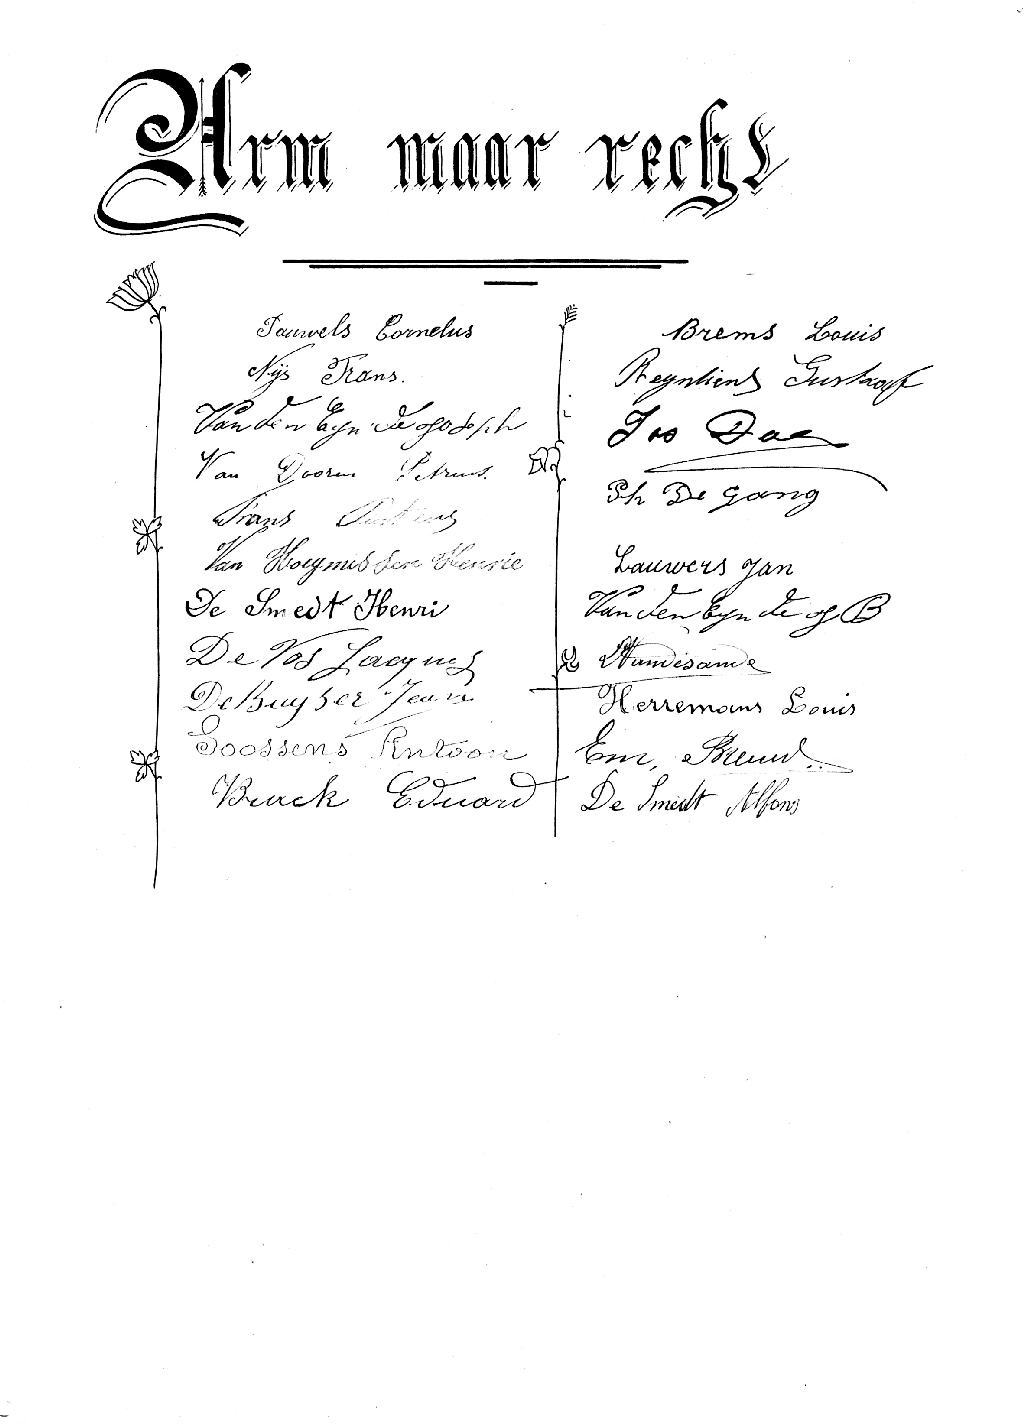 Arm maar recht
Pauwels Cornelus
Nijs Frans.
Van den Eyn de Joseph
Van Doorm Petrus.
Frans
Van Hoeymissen Henrie
De Smedt Henri
De Vos Jacques
De Buyser Jean
Goossens Antoon
Buick Eduard
Brems Louis
Reynkens Gustaaf
Jos Dae
Ph De Gang
Lauwers Jan
Van den Eyn de J B
Herremans Louis
Em.
De Smedt Alfons